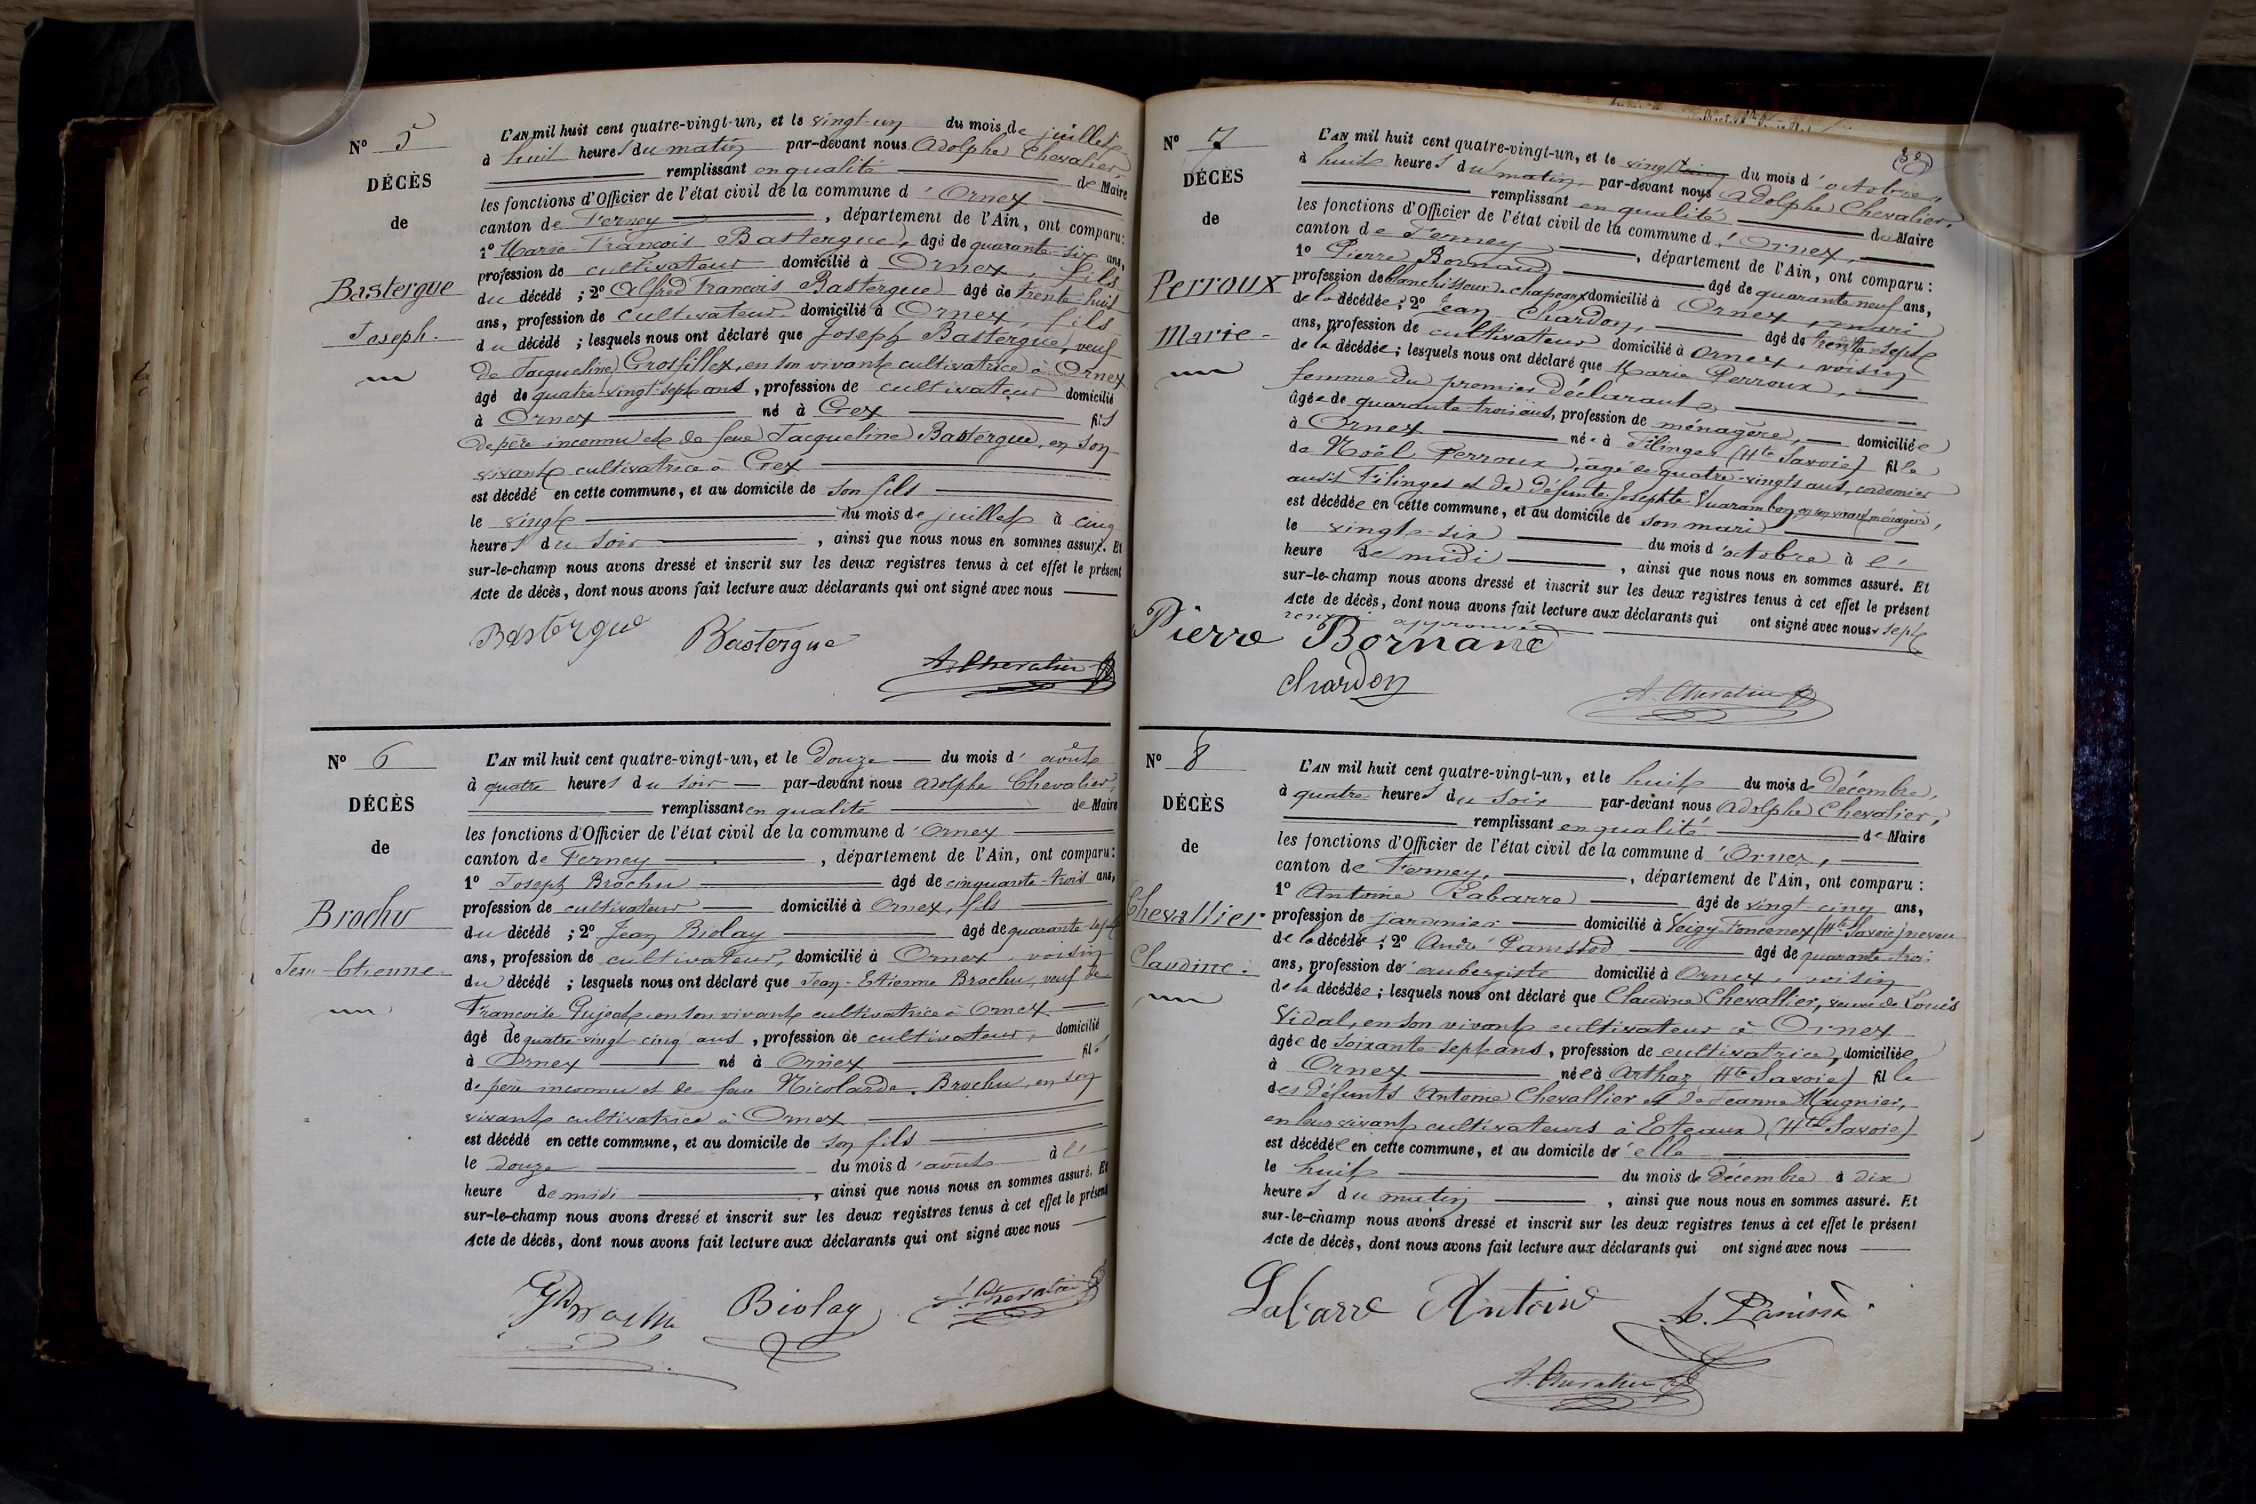 N° 5
DÉCÈS
de
Bastergue
Joseph.
L'AN mil huit cent quatre-vingt-un, et le vingt-un du mois de juillet
à huit heures du matin par-devant nous Adolphe Chevalier,
remplissant en qualité de Maire
les fonctions d'Officier de l'état civil de la commune d'Ornex
canton de Ferney, département de l'Ain, ont comparu:
1° Marie François Bastergue, âgé de quarante-six ans,
profession de cultivateur domicilié à Ornex, fils
du décédé ; 2° Alfred François Bastergue âgé de trente-huit
ans, profession de cultivateur domicilié à Ornex, fils
du décédé ; lesquels nous ont déclaré que Joseph Bastergue, veuf
de Jacqueline Grosfillex, en son vivant cultivatrice à Ornex
âgé de quatre-vingt-sept ans, profession de cultivateur domicilié
à Ornex né à Gex fils
de père inconnu et de feue Jacqueline Bastergue, en son
vivant cultivatrice à Gex
est décédé en cette commune, et au domicile de son fils
le vingt du mois de juillet à cinq
heures du soir, ainsi que nous nous en sommes assuré. Et
sur-le-champ nous avons dressé et inscrit sur les deux registres tenus à cet effet le présent
Acte de décès, dont nous avons fait lecture aux déclarants qui ont signé avec nous
Bastergue Bastergue
A. Chevalier
N° 6
DÉCÈS
de
Brochu
Jean-Etienne
L'AN mil huit cent quatre-vingt-un, et le douze du mois d'août
à quatre heures du soir par-devant nous Adolphe Chevalier,
remplissant en qualité de Maire
les fonctions d'Officier de l'état civil de la commune d'Ornex
canton de Ferney, département de l'Ain, ont comparu:
1° Joseph Brochu âgé de cinquante-trois ans,
profession de cultivateur domicilié à Ornex, fils
du décédé ; 2° Jean Biolay âgé de quarante-sept
ans, profession de cultivateur, domicilié à Ornex, voisin
du décédé ; lesquels nous ont déclaré que Jean-Etienne Brochu, veuf de
Françoise en son vivant cultivatrice à Ornex
âgé de quatre-vingt-cinq ans, profession de cultivateur, domicilié
à Ornex né à Ornex fils
de père inconnu et de feue Nicolarde Brochu, en son
vivant cultivatrice à Ornex
est décédé en cette commune, et au domicile de son fils
le douze du mois d'août à l'
heure de midi, ainsi que nous nous en sommes assuré. Et
sur-le-champ nous avons dressé et inscrit sur les deux registres tenus à cet effet le présent
Acte de décès, dont nous avons fait lecture aux déclarants qui ont signé avec nous
Biolay A. Chevalier
N° 7
DÉCÈS
de
Perroux
Marie
L'AN mil huit cent quatre-vingt-un, et le vingt du mois d'octobre,
à huit heures du matin, par-devant nous Adolphe Chevalier,
remplissant en qualité de Maire
les fonctions d'Officier de l'état civil de la commune d'Ornex,
canton de Ferney, département de l'Ain, ont comparu :
1° Pierre Bornand âgé de quarante neuf ans,
profession de blanchisseur de chapeaux domicilié à Ornex, mari
de la décédée ; 2° Jean Chardon, âgé de trente-sept
ans, profession de cultivateur domicilié à Ornex, voisin
de la décédée ; lesquels nous ont déclaré que Marie Perroux,
femme du premier déclarant
âgée de quarante-trois ans, profession de ménagère, domiciliée
à Ornex née à Filinges (Hte Savoie) fille
de Noël Perroux, âgé de quatre-vingts ans,
audit Filinges et de défunte Josephte en son vivant ménagère,
est décédée en cette commune, et au domicile de son mari
le vingt-six du mois d'octobre à l'
heure de midi, ainsi que nous nous en sommes assuré. Et
sur-le-champ nous avons dressé et inscrit sur les deux registres tenus à cet effet le présent
Acte de décès, dont nous avons fait lecture aux déclarants qui ont signé avec nous sept
renvoi approuvé
Pierre Bornand
Chardon A. Chevalier
N° 8
DÉCÈS
de
Chevallier
Claudine.
L'AN mil huit cent quatre-vingt-un, et le huit du mois de décembre,
à quatre heures du soir par-devant nous Adolphe Chevalier,
remplissant en qualité de Maire
les fonctions d'Officier de l'état civil de la commune d'Ornex,
canton de Ferney, département de l'Ain, ont comparu :
1° Antoine Labarre âgé de vingt-cinq ans,
profession de jardinier domicilié à Veigy Foncenex (Hte Savoie) neveu
de la décédée ; 2° André Panissod âgé de quarante-trois
ans, profession d'aubergiste domicilié à Ornex, voisin
de la décédée ; lesquels nous ont déclaré que Claudine Chevallier, veuve de Louis
Vidal, en son vivant cultivateur à Ornex
âgée de soixante sept ans, profession de cultivatrice, domiciliée
à Ornex née à Arthaz (Hte Savoie) fille
des défunts Antoine Chevallier et de Jeanne Mugnier,
en leur vivant cultivateurs à Eteaux (Hte Savoie)
est décédée en cette commune, et au domicile d'elle
le huit du mois de décembre à dix
heures du matin, ainsi que nous nous en sommes assuré. Et
sur-le-champ nous avons dressé et inscrit sur les deux registres tenus à cet effet le présent
Acte de décès, dont nous avons fait lecture aux déclarants qui ont signé avec nous
Labarre Antoine A. Panissod
A. Chevalier